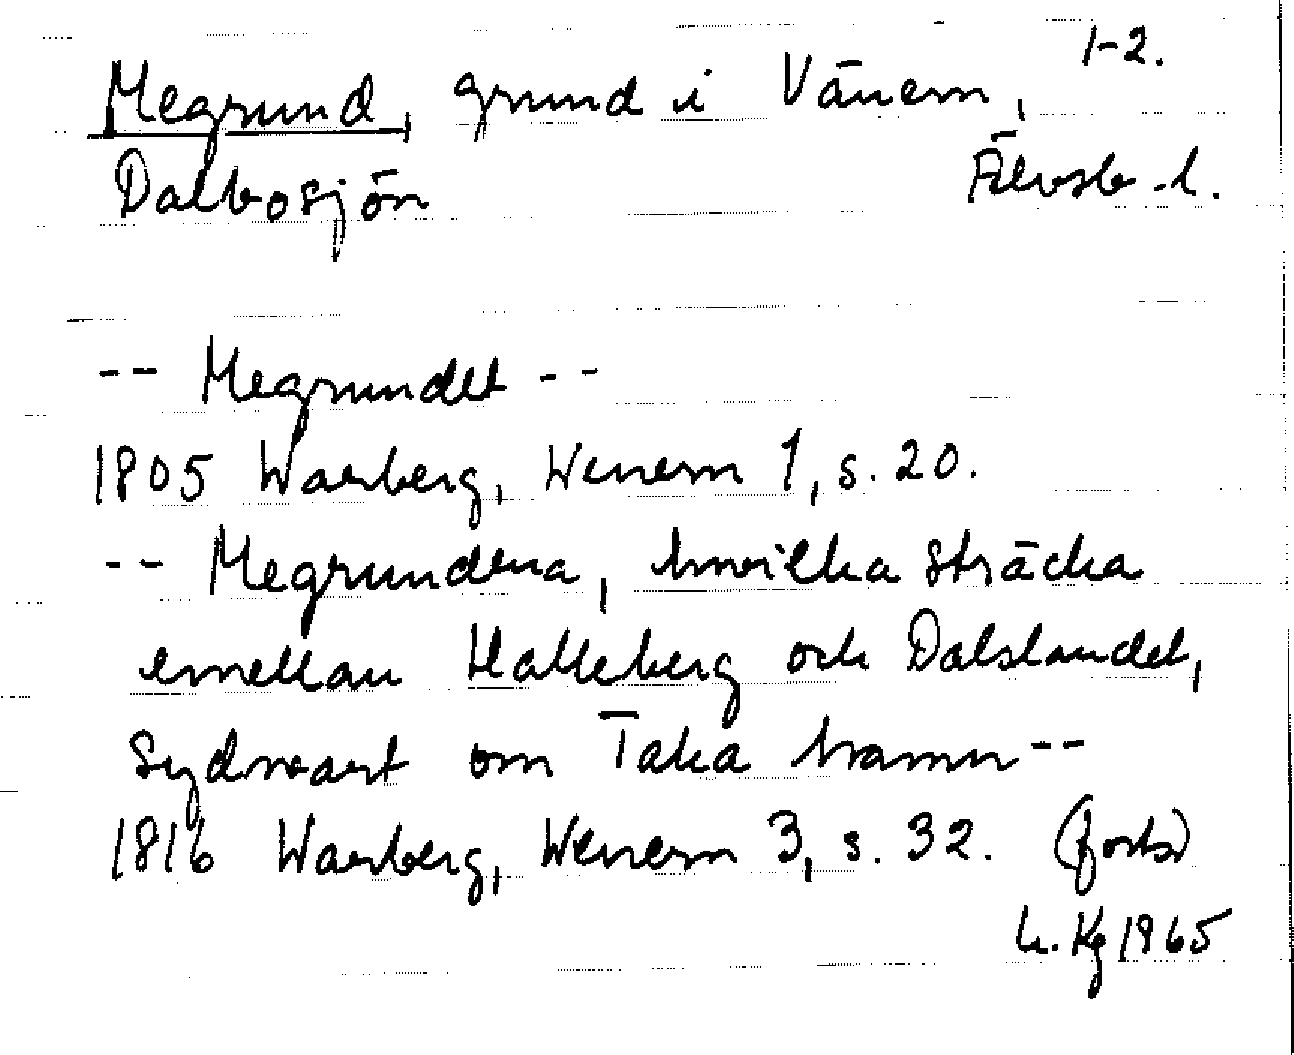 1-2.
Megrund, grund i Vänern,
Dalbosjön Älvsb. l.
-- Megrundet --
1805 Warberg, Wenern 1, s. 20.
-- Megrundena, hwilka sträcka
emellan Halleberg och Dalslandet,
sydwart om Taka hamn --
1816 Warberg, Wenern 3, s. 32. (forts)
Kg 1965